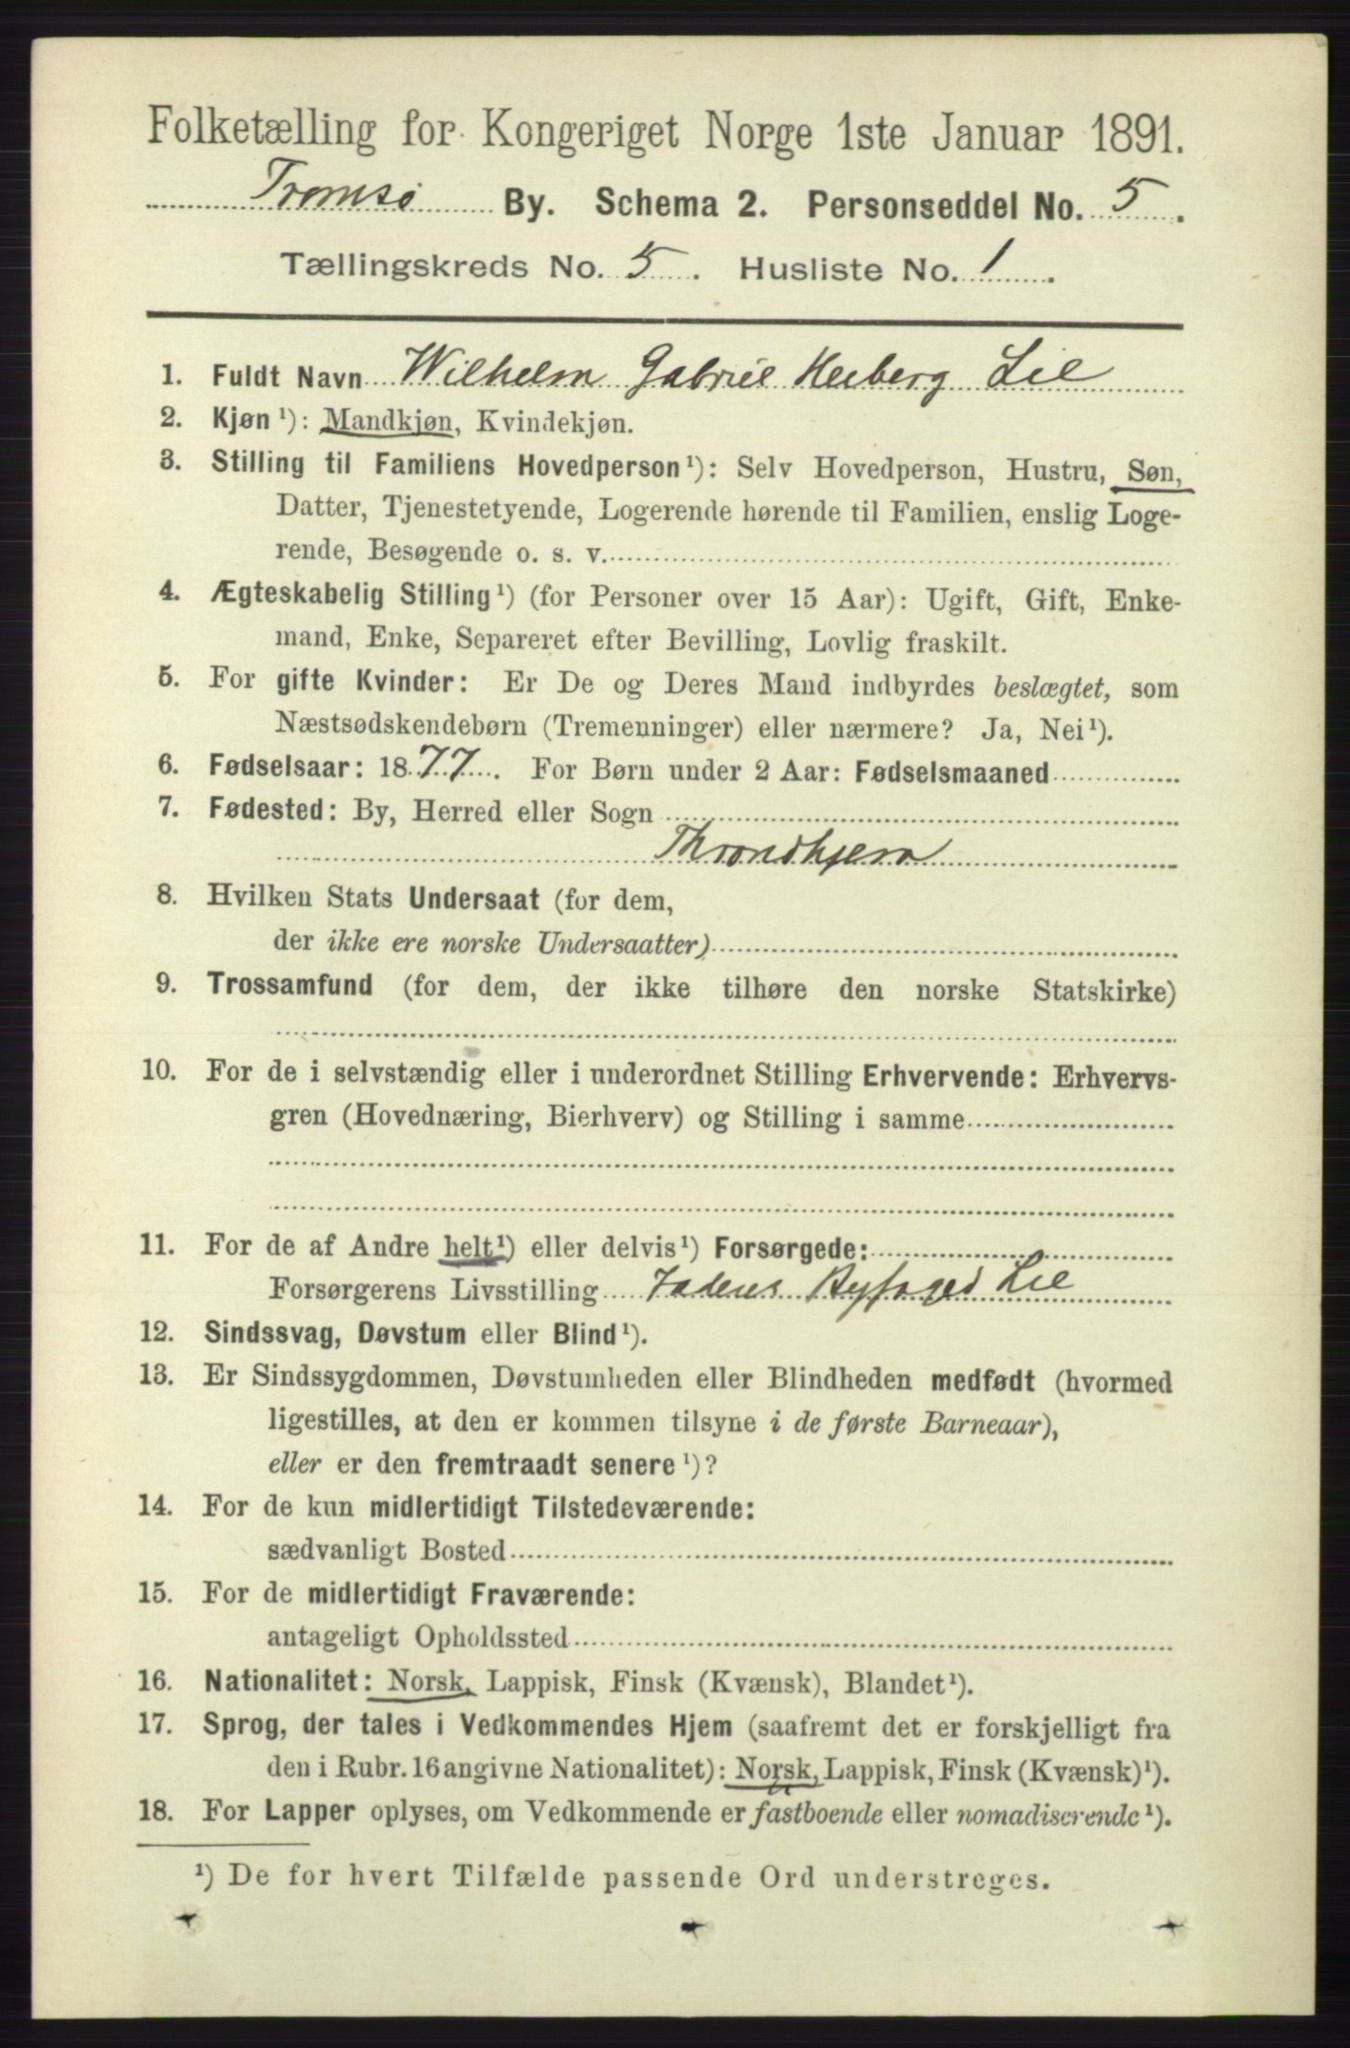 Folketælling for Kongeriget Norge 1ste Januar 1891.
Tromsø By. Schema 2. Personseddel No. 5.
Tællingskreds No. 5. Husliste No. 1.
1. Fuldt Navn Wilhelm Gabriel Heiberg Lie
2. Kjøn¹): Mandkjøn, Kvindekjøn.
3. Stilling til Familiens Hovedperson¹): Selv Hovedperson, Hustru, Søn,
Datter, Tjenestetyende, Logerende hørende til Familien, enslig Loge-
rende, Besøgende o. s. v.
4. Ægteskabelig Stilling¹) (for Personer over 15 Aar): Ugift, Gift, Enke-
mand, Enke, Separeret efter Bevilling, Lovlig fraskilt.
5. For gifte Kvinder: Er De og Deres Mand indbyrdes beslægtet, som
Næstsødskendebørn (Tremenninger) eller nærmere? Ja, Nei¹).
6. Fødselsaar: 1877. For Børn under 2 Aar: Fødselsmaaned
7. Fødested: By, Herred eller Sogn
Throndhjem
8. Hvilken Stats Undersaat (for dem,
der ikke ere norske Undersaatter)
9. Trossamfund (for dem, der ikke tilhøre den norske Statskirke)
10. For de i selvstændig eller i underordnet Stilling Erhvervende: Erhvervs-
gren (Hovednæring, Bierhverv) og Stilling i samme
11. For de af Andre helt¹) eller delvis¹) Forsørgede:
Forsørgerens Livsstilling Faderens Byfoged Lie
12. Sindssvag, Døvstum eller Blind¹).
13. Er Sindssygdommen, Døvstumheden eller Blindheden medfødt (hvormed
ligestilles, at den er kommen tilsyne i de første Barneaar),
eller er den fremtraadt senere¹)?
14. For de kun midlertidigt Tilstedeværende:
sædvanligt Bosted
15. For de midlertidigt Fraværende:
antageligt Opholdssted
16. Nationalitet: Norsk, Lappisk, Finsk (Kvænsk), Blandet¹).
17. Sprog, der tales i Vedkommendes Hjem (saafremt det er forskjelligt fra
den i Rubr. 16 angivne Nationalitet): Norsk, Lappisk, Finsk (Kvænsk)¹).
18. For Lapper oplyses, om Vedkommende er fastboende eller nomadiserende¹).
¹) De for hvert Tilfælde passende Ord understreges.